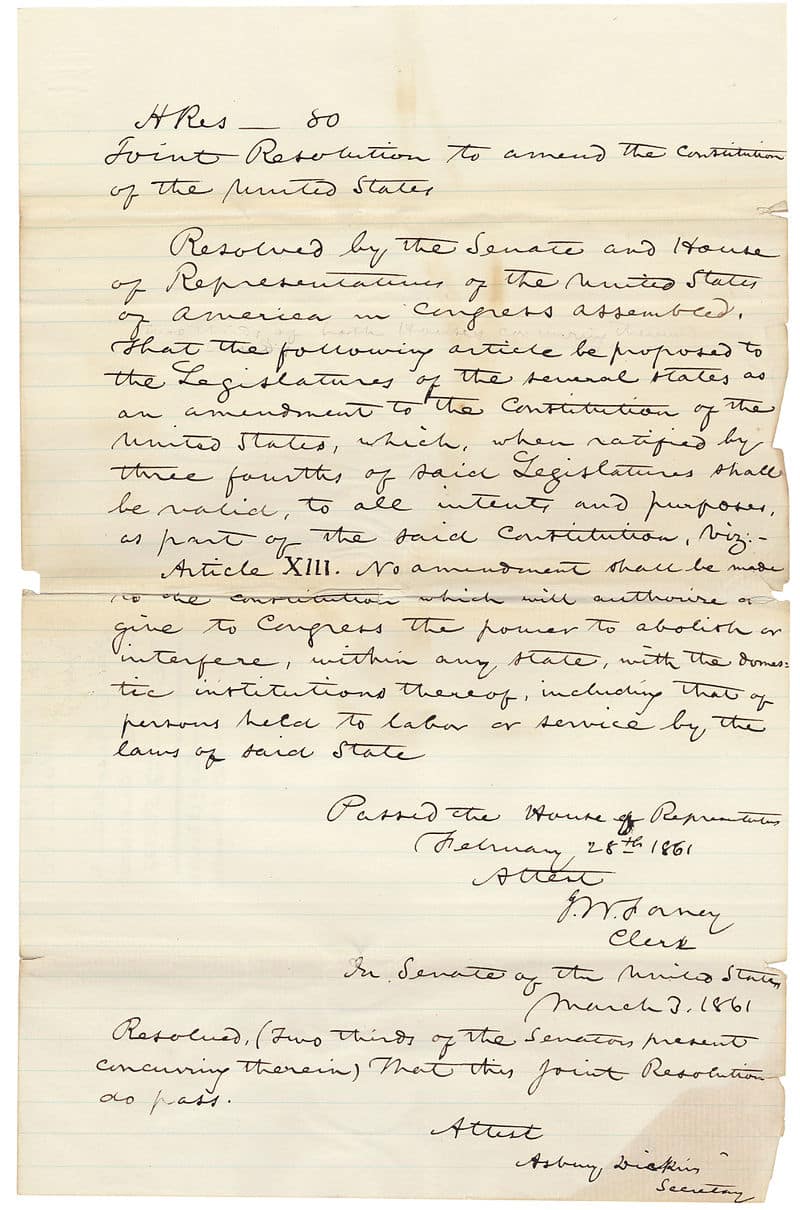 H Res — 80
Joint Resolution to amend the Constitution
of the United States
Resolved by the Senate and House
of Representatives of the United States
of America in Congress assembled,
That the following article be proposed to
the Legislatures of the several states as
an amendment to the Constitution of the
United States, which, when ratified by
three fourths of said Legislatures shall
be valid, to all intents and purposes,
as part of the said Constitution, viz:-
Article XIII. No amendment shall be made
to the constitution which will authorize or
give to Congress the power to abolish or
interfere, within any state, with the domes-
tic institutions thereof, including that of
persons held to labor or service by the
laws of said State
Passed the House of Representatives
February 28th 1861
Attest
J.W. Forney
Clerk
In Senate of the United States
March 3, 1861
Resolved, (two thirds of the Senators present
concurring therein) That this Joint Resolution
do pass.
Attest
Asbury Dickins
Secretary